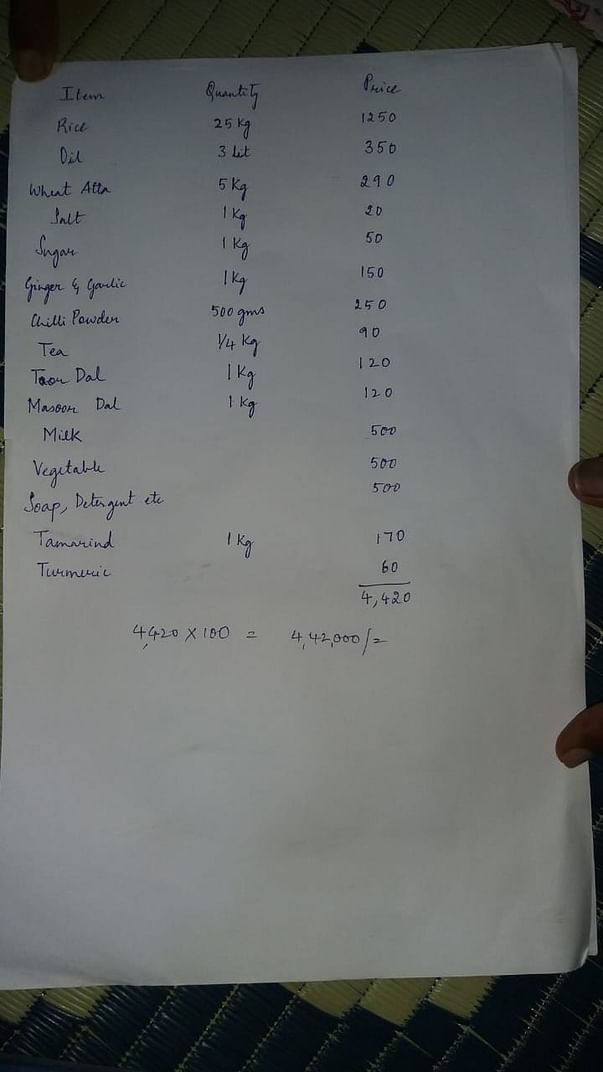 Item Quantity Price
Rice 25 Kg 1250
Oil 3 Lit 350
Wheat Atta 5 Kg 290
Salt 1 Kg 20
Sugar 1 Kg 50
Ginger & Garlic 1 Kg 150
Chilli Powder 500 gms 250
Tea 1/4 Kg 90
Toor Dal 1 Kg 120
Masoor Dal 1 Kg 120
Milk 500
Vegetable 500
Soap, Detergent etc 500
Tamarind 1 Kg 170
Turmeric 60
4,420
4,420 X 100 = 4,42,000/=